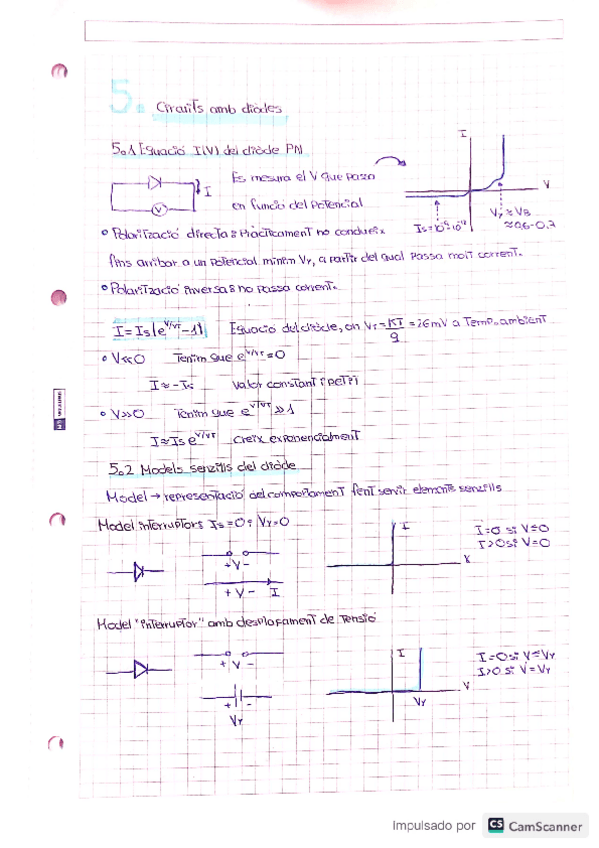 5. Circuits amb díodes
5.1 Equació I(V) del díode PN
Es mesura el V que passa
en funció del potencial
I
V
I
V
Is=10⁻⁶-10⁻¹²
Vγ ≈ VB
≈0,6-0,7
• Polarització directa: Pràcticament no condueix
fins arribar a un potencial mínim Vγ, a partir del qual passa molt corrent.
• Polarització inversa: no passa corrent.
I=Is(e^V/VT -1) Equació del díode, on VT = KT/q = 26mV a Temp. ambient
• V<<0 Tenim que e^V/VT ≈ 0
I ≈ -Is valor constant i petit
• V>>0 Tenim que e^V/VT >> 1
I ≈ Is e^V/VT creix exponencialment
5.2 Models senzills del díode
Model → representació del comportament fent servir elements senzills
Model interruptor: Is=0 i Vγ=0
I
V
I=0 si V≤0
I>0 si V=0
+ V -
+ V - I
Model "interruptor" amb desplaçament de tensió
I
V
Vγ
I=0 si V≤Vγ
I>0 si V=Vγ
+ V -
+ -
Vγ
Impulsado por CS CamScanner